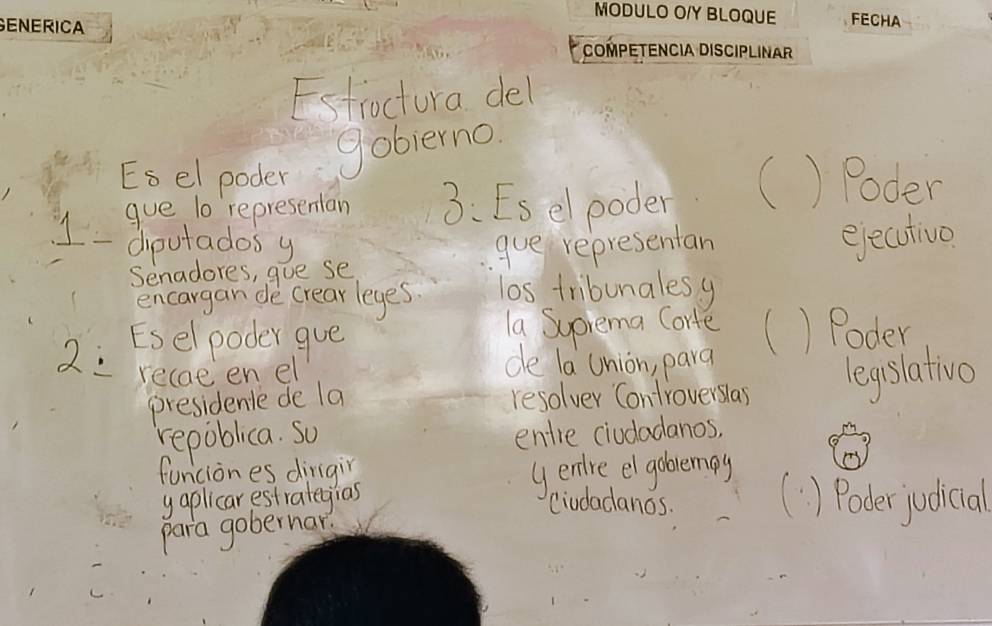 GENERICA
MODULO O/Y BLOQUE
FECHA
COMPETENCIA DISCIPLINAR
Estructura del
gobierno.
1- Es el poder
que lo representan
diputados y
Senadores, que se
encargan de crear leyes.
2: Es el poder que
recae en el
presidente de la
república. Su
función es dirigir
y aplicar estrategias
para gobernar.
3: Es el poder
que representan
los tribunales y
la Suprema Corte
de la Unión, para
resolver Controversias
entre ciudadanos,
y entre el gobierno y
ciudadanos.
( ) Poder
ejecutivo
( ) Poder
legislativo
( ) Poder judicial.